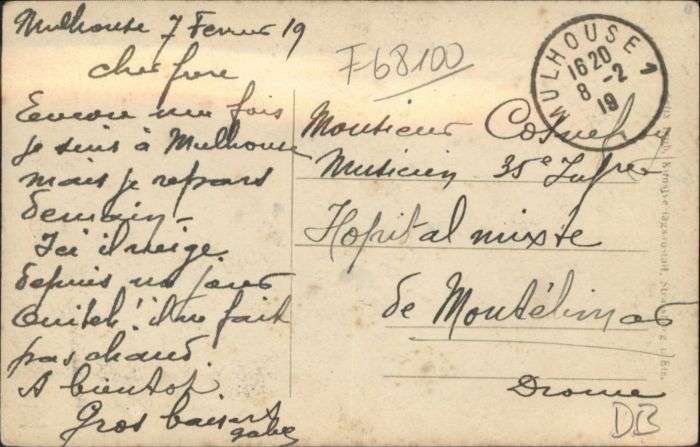 Mulhouse 7 Fevrier 19
cher frere
Encore une fois
je suis à Mulhouse
mais je repars
demain -
Ici il neige
depuis un jour
il ne fait
pas chaud.
A bientot
Gros baisers
F-68100
MULHOUSE 1
16 20
8 -2
19
Monsieur
Musicien 35e Infrie
Hopital mixte
de Montélimar
Drome
DB